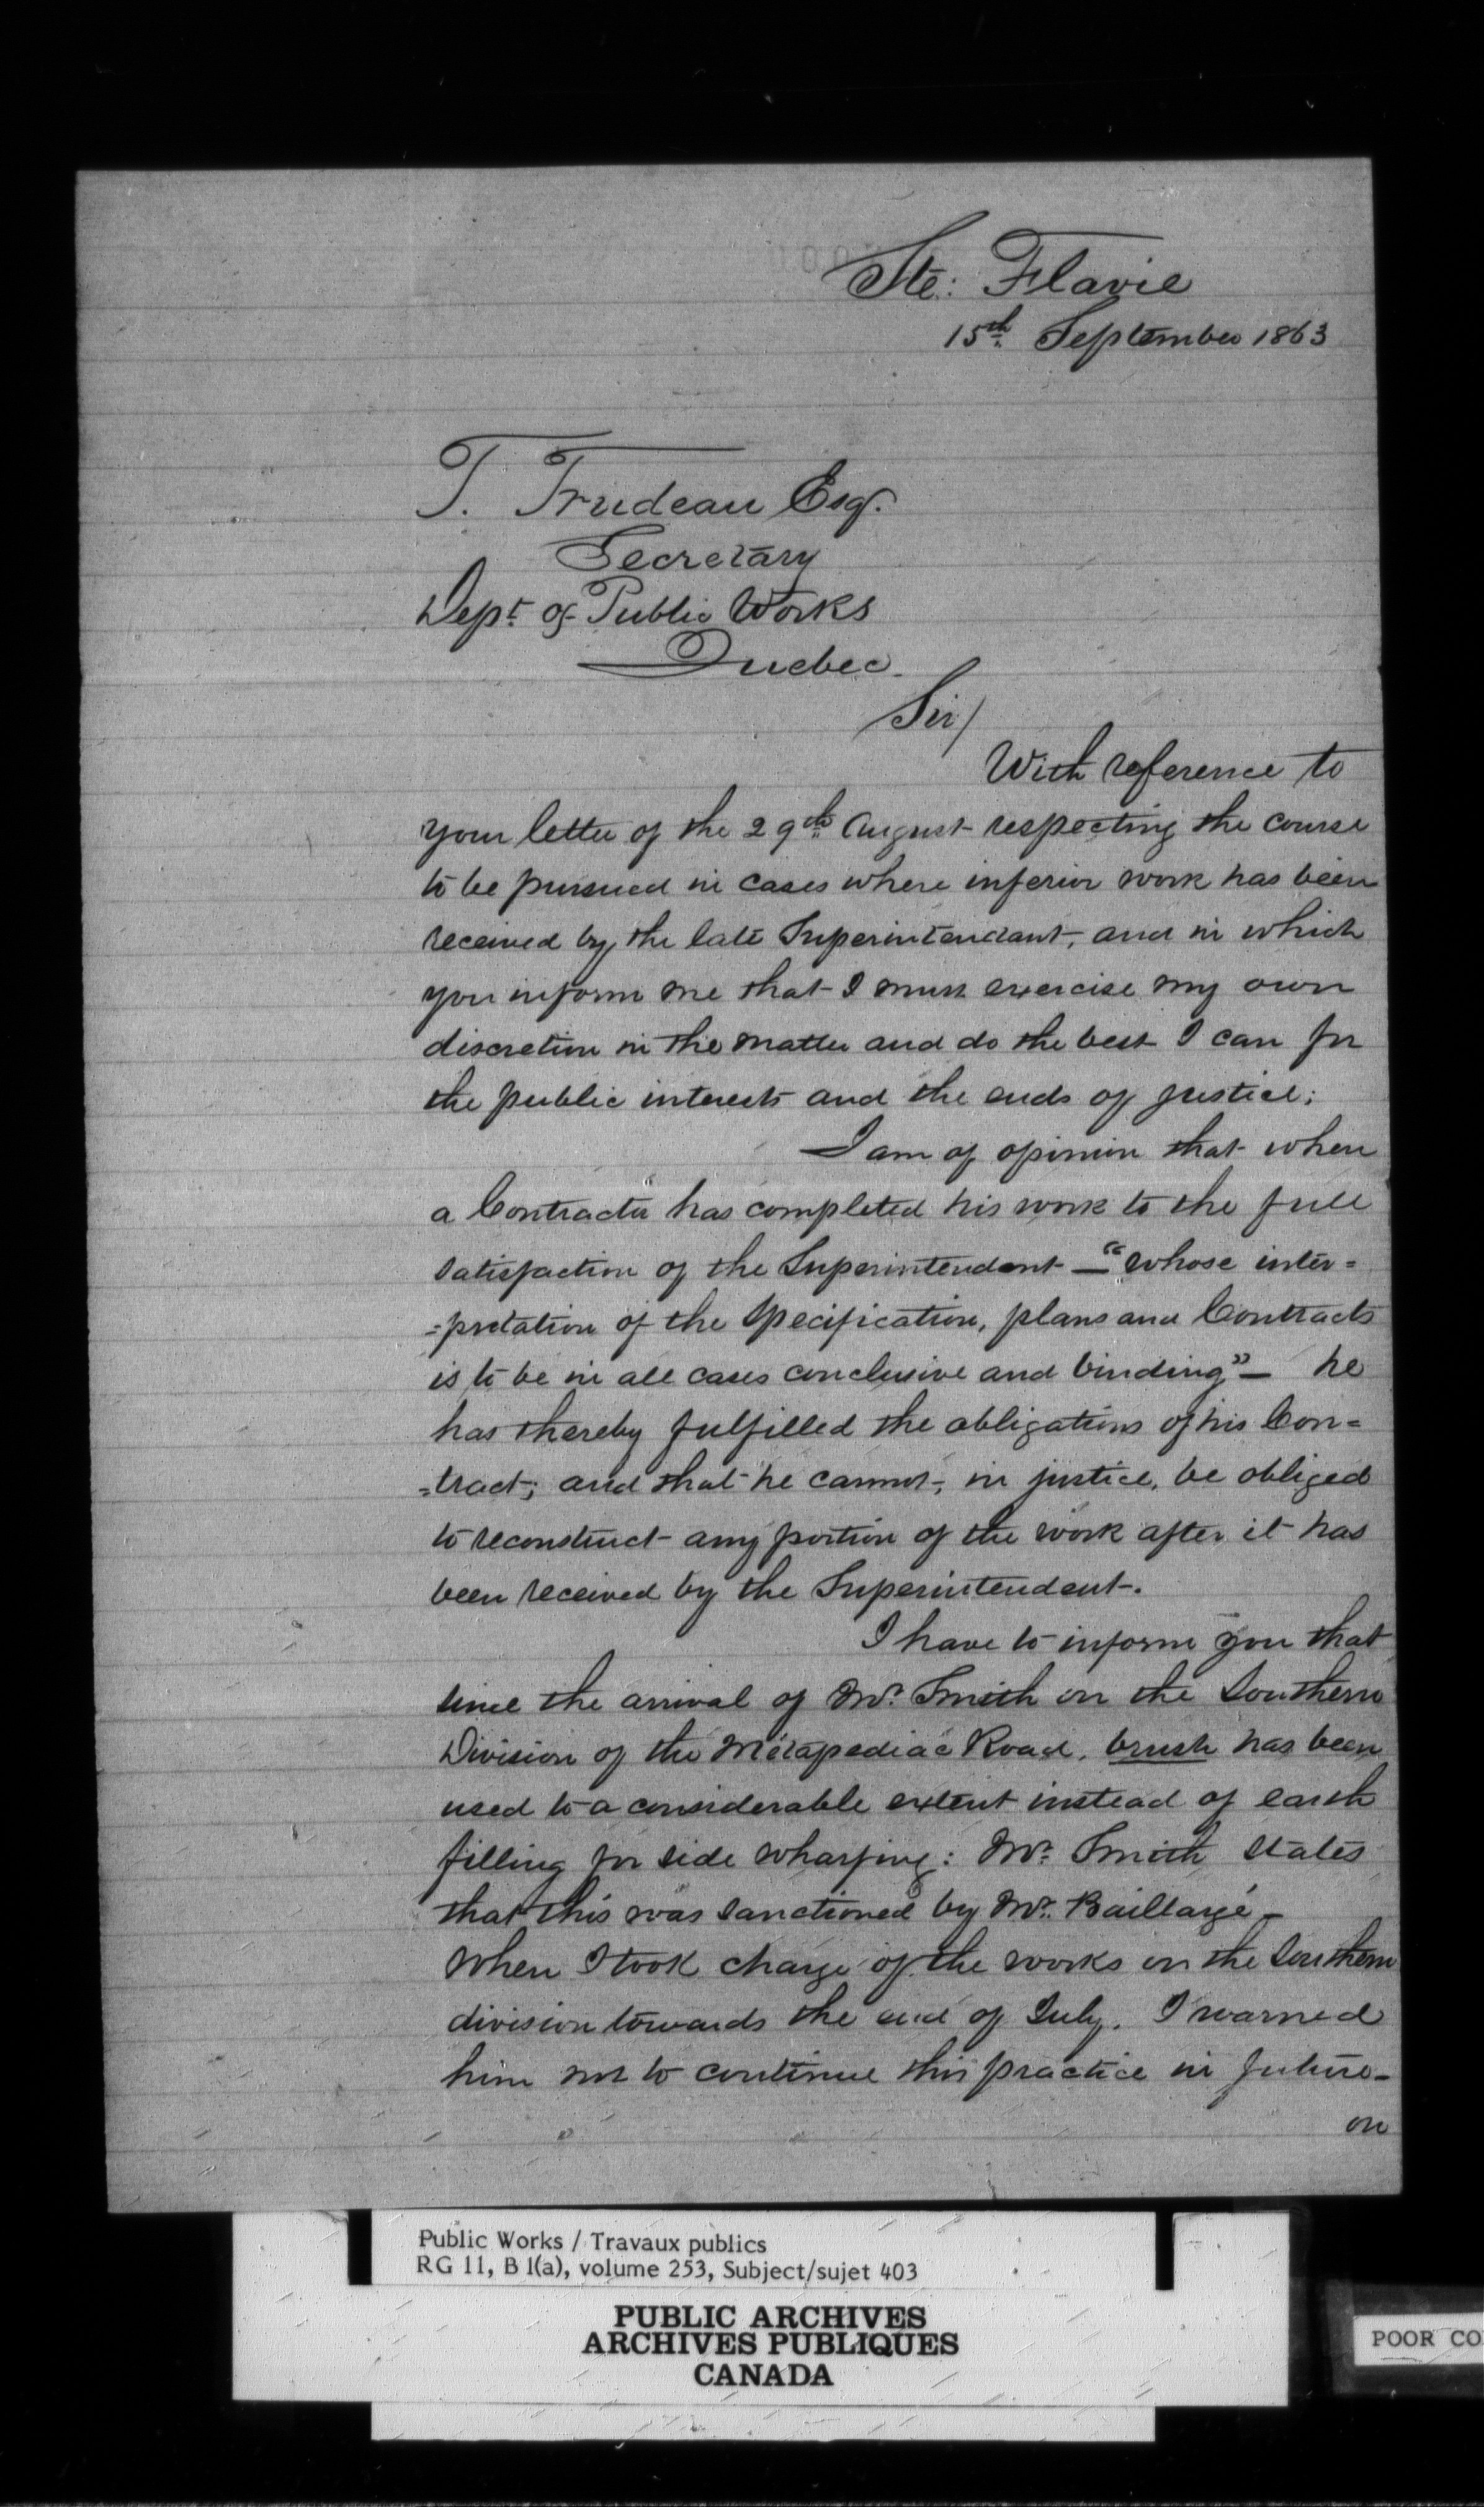 Ste: Flavie
15th September 1863
T. Trudeau Esq.
Secretary
Dept of Public Works
Quebec.
Sir/
With reference to
your letter of the 29th August respecting the course
to be pursued in cases where inferior work has been
received by the late Superintendant, and in which
you inform me that I must exercise my own
discretion in the matter and do the best I can for
the public interests and the ends of justice;
I am of opinion that when
a Contractor has completed his work to the full
satisfaction of the Superintendent — "whose inter=
=pretation of the Specification, plans and Contracts
is to be in all cases conclusive and binding" — he
has thereby fulfilled the obligations of his Con=
=tract; and that he cannot, in justice, be obliged
to reconstruct any portion of the work after it has
been received by the Superintendent.
I have to inform you that
since the arrival of Mr. Smith on the Southern
Division of the Metapediac Road, brush has been
used to a considerable extent instead of earth
filling for side wharfing: Mr. Smith states
that this was sanctioned by Mr. Baillargé —
When I took charge of the works on the Southern
division towards the end of July, I warned
him not to continue this practice in future —
on
Public Works / Travaux publics
RG 11, B 1(a), volume 253, Subject/sujet 403
PUBLIC ARCHIVES
ARCHIVES PUBLIQUES
CANADA
POOR CO